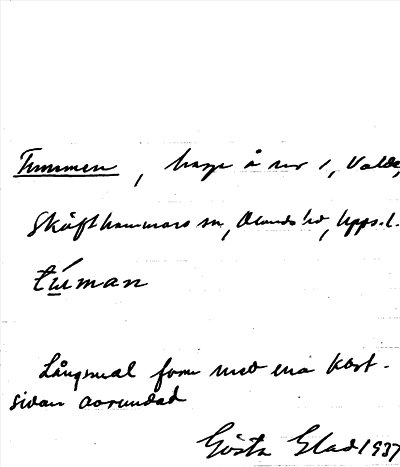 Tummen, hage å nr 1, Valda,
Skäfthammars sn, Olands hd, Upps. l.
túman
Långsmal form med ena kort-
sidan avrundad
Gösta Glad 1937